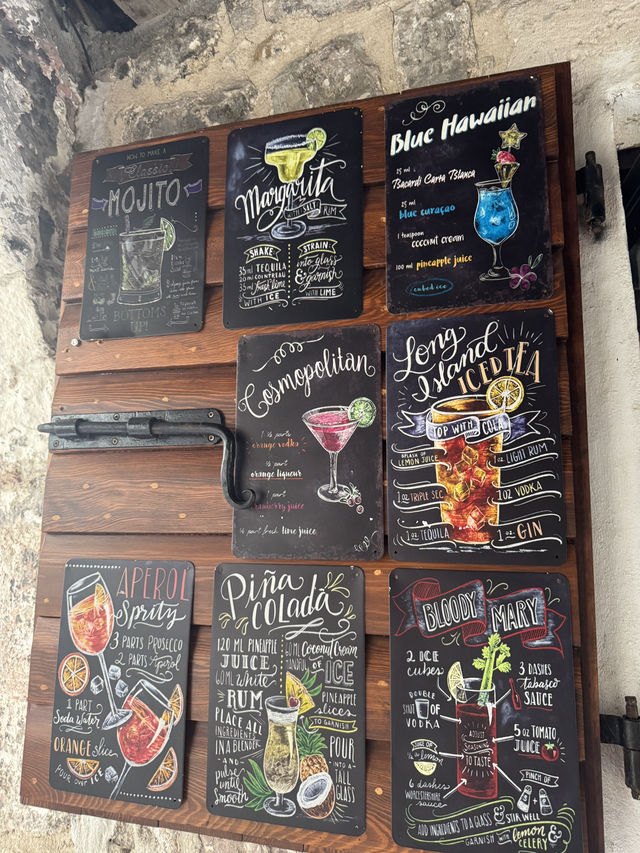 HOW TO MAKE A
Classic
MOJITO
BOTTOMS
UP!
Margarita
WITH SALT RIM
SHAKE
35 ml TEQUILA
20 ml COINTREAU
35 ml fresh lime
WITH ICE
STRAIN
into glass
& garnish
WITH LIME
Blue Hawaiian
25 ml
Bacardi Carta Blanca
25 ml
blue curaçao
1 teaspoon
coconut cream
100 ml pineapple juice
cubed ice
Cosmopolitan
1 ½ parts
orange vodka
½ part
orange liqueur
part
juice
part fresh lime juice
Long
Island
ICED TEA
TOP WITH COLA
SPLASH OF
LEMON JUICE
1 oz LIGHT RUM
1 oz TRIPLE SEC
1 oz VODKA
1 oz TEQUILA
1 oz GIN
APEROL
Spritz
3 PARTS PROSECCO
2 PARTS Aperol
1 PART
Soda Water
ORANGE slice
POUR OVER ICE
Piña
COLADA
120 ML PINEAPPLE
JUICE
60ML White
RUM
PLACE ALL
INGREDIENTS
IN A BLENDER
AND
pulse
until
smooth
60ML Coconut Cream
HANDFUL OF ICE
PINEAPPLE
slices
TO GARNISH
POUR
INTO A
TALL
GLASS
BLOODY MARY
2 ICE
cubes
DOUBLE
SHOT OF
VODKA
JUICE OF
¼ a lemon
6 dashes
WORCESTERSHIRE
sauce
ADJUST
SEASONING
TO TASTE
3 DASHES
tabasco
SAUCE
5 oz TOMATO
JUICE
PINCH OF
S + P
ADD INGREDIENTS TO A GLASS & STIR WELL
GARNISH with lemon &
CELERY